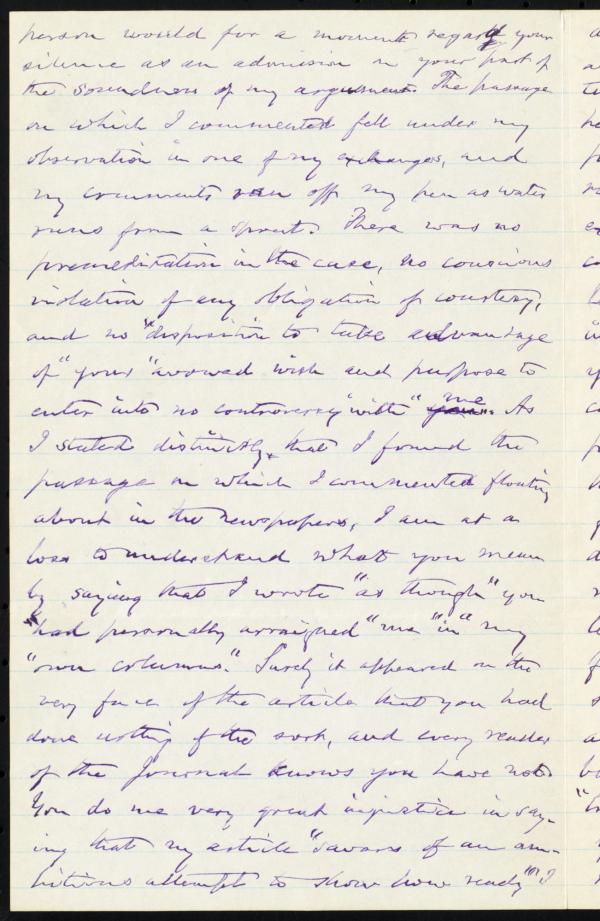 person would for a moment regard your
silence as an admission on your part of
the soundness of my argument. The passage
on which I commented fell under my
observation in one of my exchanges, and
my comments ran off my pen as water
runs from a spout. There was no
premeditation in the case, no conscious
violation of any obligation of courtesy,
and no "disposition to take advantage
of" your "avowed wish and purpose to
enter into no controversy with" me. As
I stated distinctly, that I found the
passage on which I commented floating
about in the newspapers, I am at a
loss to understand what you mean
by saying that I wrote "as though" you
"had personally arraigned" me "in" my
"own columns." Surely it appeared on the
very face of the article that you had
done nothing of the sort, and every reader
of the Journal knows you have not.
You do me very great injustice in say-
ing that my article "savors of an am-
bitious attempt to show how ready" I